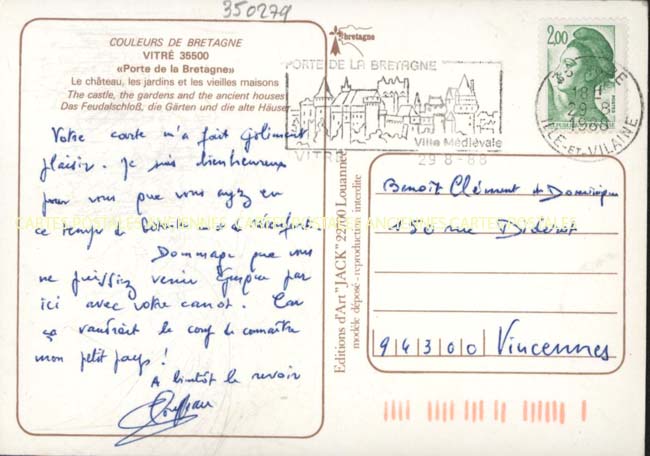 350279
COULEURS DE BRETAGNE
VITRÉ 35500
«Porte de la Bretagne»
Le château, les jardins et les vieilles maisons
The castle, the gardens and the ancient houses
Das Feudalschloß, die Gärten und die alte Häuser
Votre carte m'a fait joliment
plaisir. Je suis bienheureux
pour vous que vous ayez eu
ce temps de
Dommage que vous
ne puissiez venir jusque par
ici avec votre canot. Car
ça vaudrait le coup de connaître
mon petit pays!
A bientôt le revoir
bretagne
PORTE DE LA BRETAGNE
Ville Médiévale
VITRÉ
29-8-88
2,00
18H
29 8
1988
ILLE-ET-VILAINE
Editions d'Art "JACK" 22700 Louannec
modèle déposé - reproduction interdite
Benoît Clément de Dominique
150 rue Diderot
94300 Vincennes
CARTES POSTALES ANCIENNES CARTES POSTALES ANCIENNES CARTES POSTALES